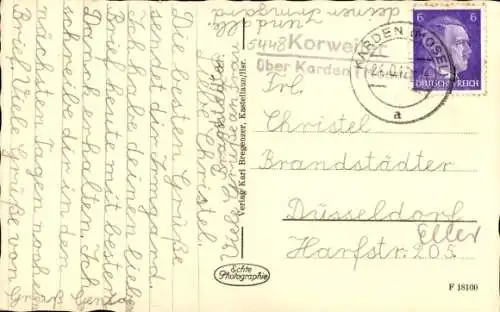 Liebe Christel.
Die besten Grüße
sendet dir Irmgard.
Deinen lieben
Brief heute mit bestem
Dank erhalten. Ich
schreibe dir in den
nächsten Tagen noch ein
Brief. Viele Grüße von
Viele Grüße an Frau
Brandstätter
und alle.
5448 Korweiler
über Karden (Mosel)
KARDEN (MOSEL)
a
6 6
DEUTSCHES REICH
Frl.
Christel
Brandstädter
Düsseldorf
Eller
Harfstr. 205.
Verlag Karl Bregenzer, Kastellaun/Hsr.
Echte
Photographie
F 18100